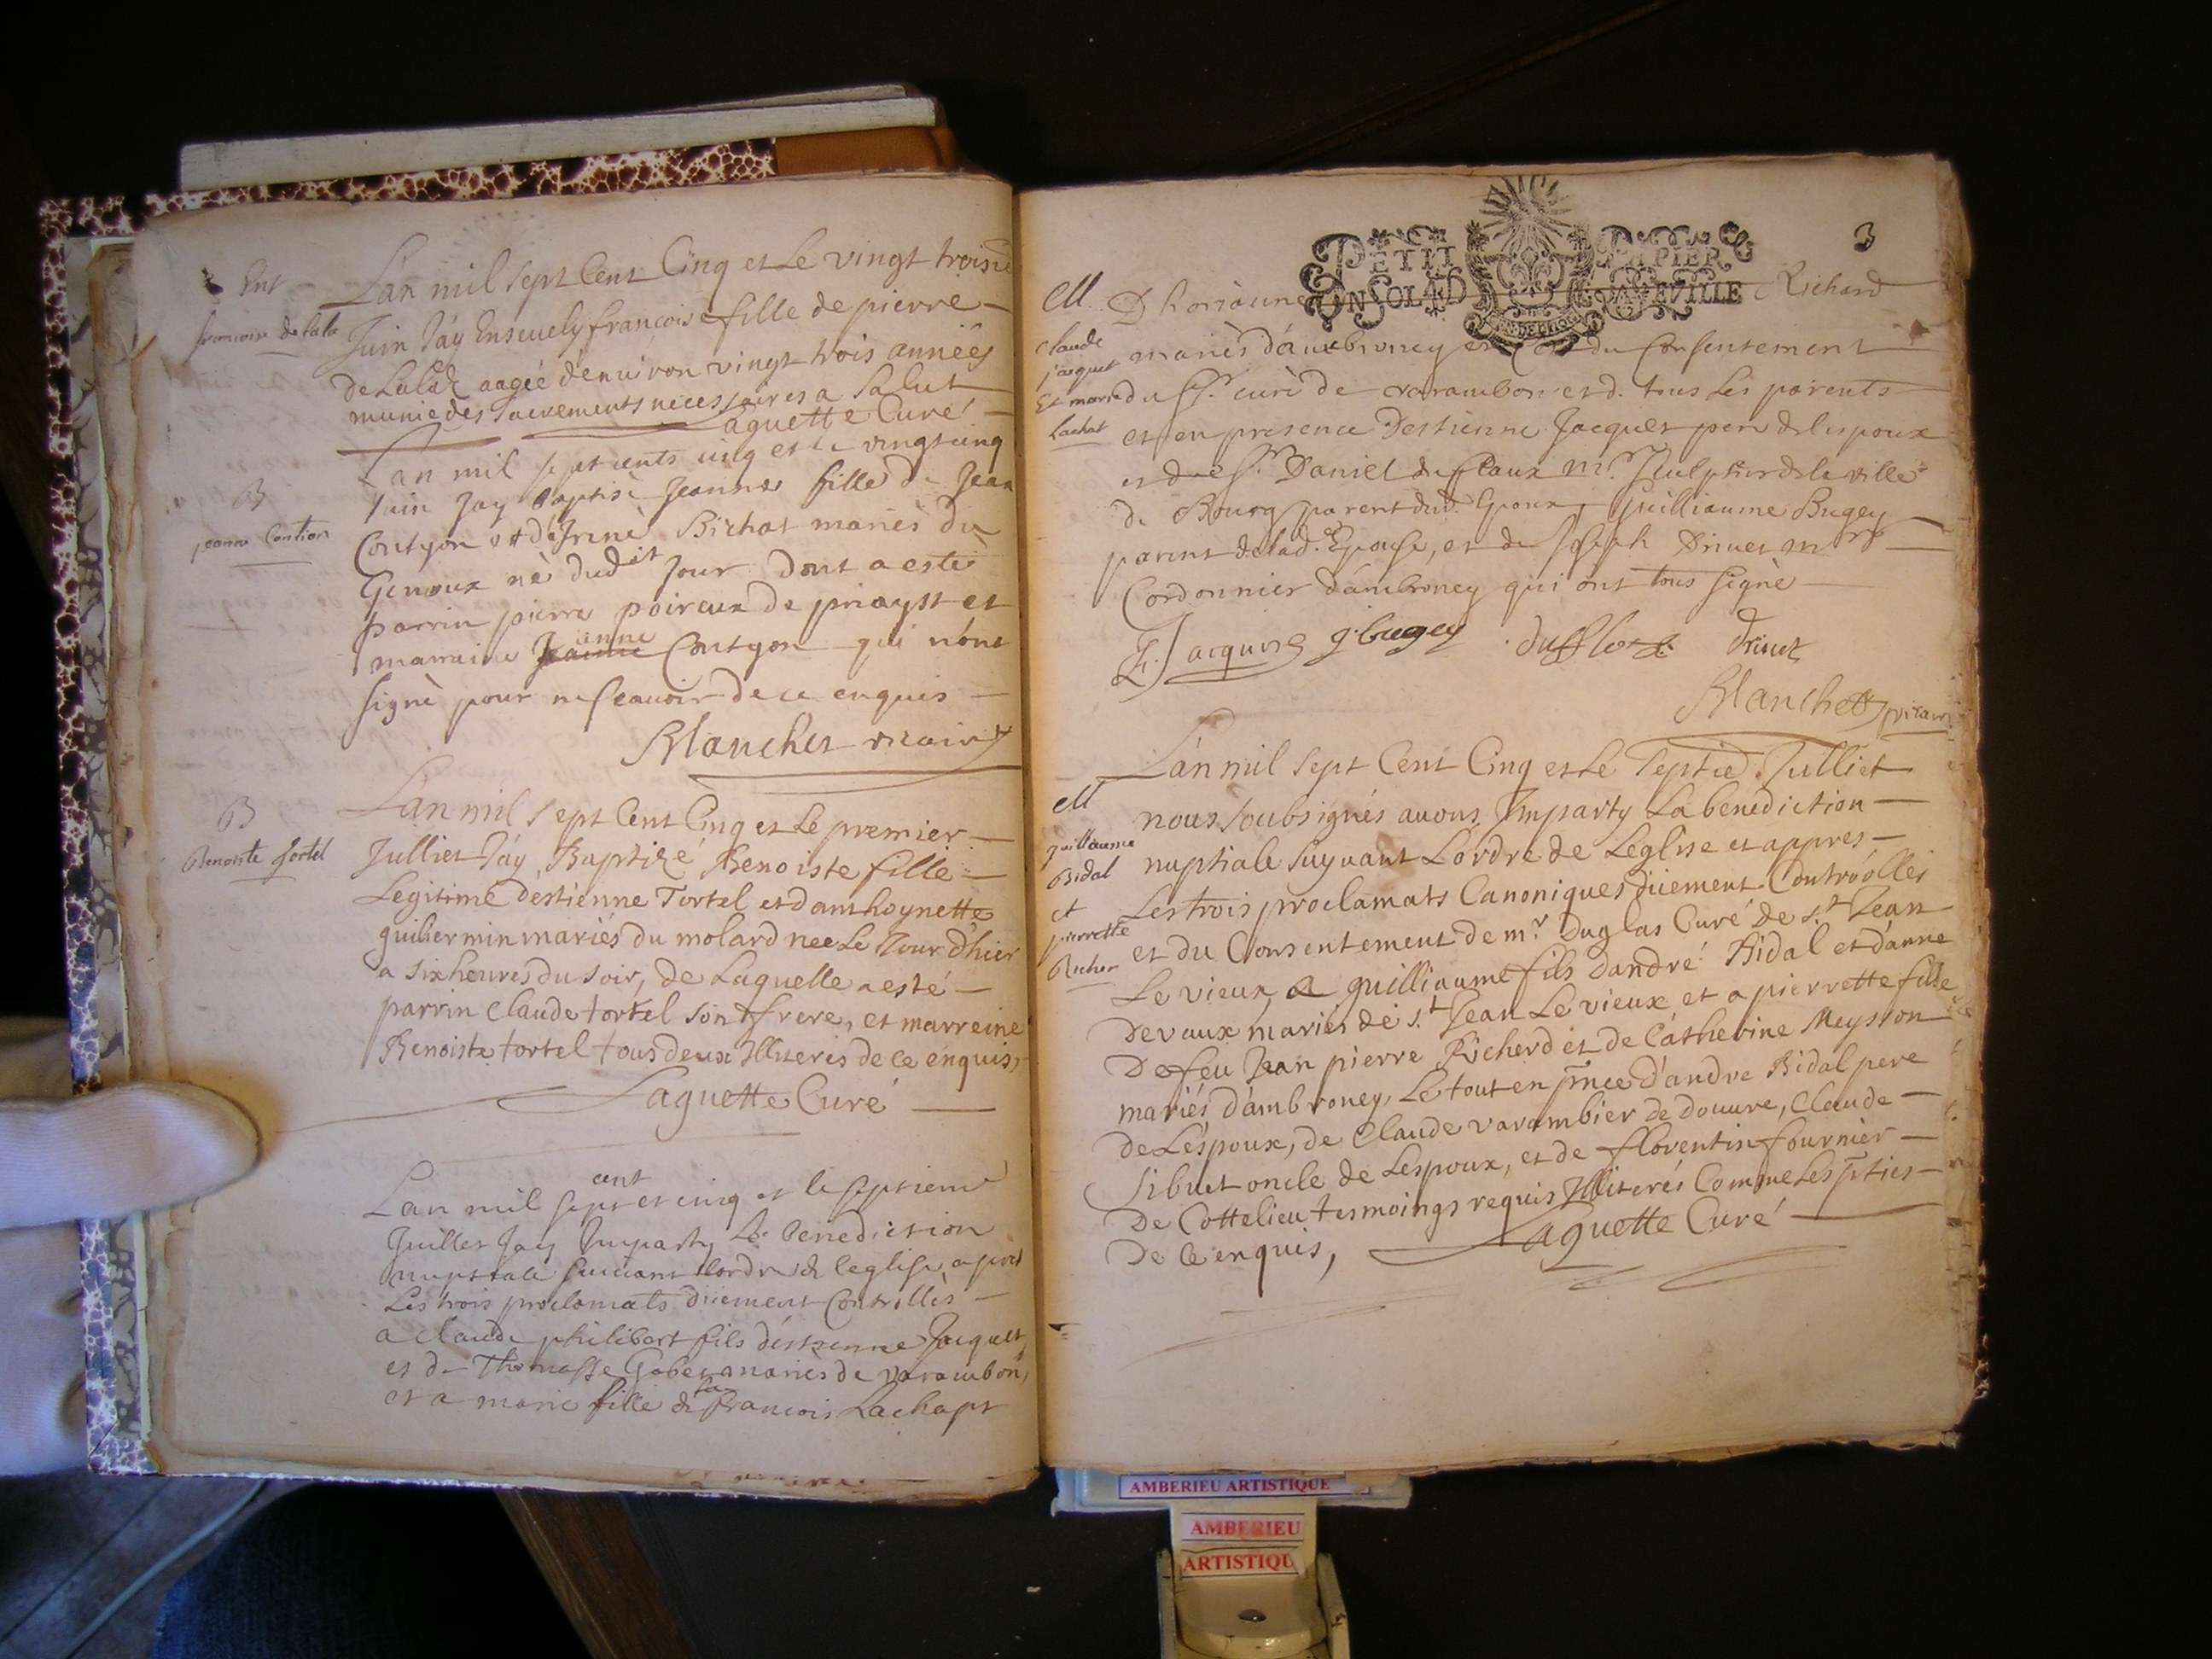 Ent
francoise de lala
Lan mil sept Cent Cinq et Le vingt troisie
Juin J'ay Enseuely francoise fille de pierre
De Lala aagée d'environ vingt trois années
munie des sacrements necessaires a Salut
Laguette Curé
B
jeanne Contion
Lan mil sept cents cinq et le vingt cinq
Juin Jay baptisé Jeanne fille de Jean
Contyon et de Bichat mariés du
Genoux né dudit Jour dont a esté
parrin pierre poireux de priay et
marraine Jeanne anne Contyon qui n'ont
signé pour ne scauoir de ce enquis
Blanchet vicaire
B
Benoiste tortel
Lan mil sept Cent Cinq et Le premier
Julliet J'ay Baptizé Benoiste fille
Legitime d'estienne Tortel et d'anthoynette
guillermin mariés du molard nee Le Jour d'hier
a six heures du soir, de Laquelle a esté
parrin Claude tortel son frere, et marreine
Benoiste tortel tous deux Illiteres de ce enquis,
Laguette Curé
Lan mil sept cent et cinq et le septieme
Juillet Jay Imparty La benediction
nuptiale suiuant lordre de leglise apres
Les trois proclamats düement Controllés
a claude philibert fils d'estienne Jacquet
et de Thomasse Gobet mariés de varambon,
et a marie fille de feu francois Lachapt
3
PETIT PAPIER
UN SOL LA FEUILLE
M.
claude
jacquet
Et marie
Lachat
Richard
mariés d'ambroney et du Consentement
du Sr. curé de varambon et d. tous Les parents
et en presence Destienne Jacquet pere de lespoux
et de Sr. Daniel du flaux mr. Sculpteur de la ville
de Bourg parent dud. Epoux, Guilliaume Bugey
parent de lad. Epouse, et de Joseph Driuet mre
Cordonnier d'ambroney qui ont tous signé
E. Jacques g. bugey Driuet
Blanchet vicaire
M
guillaume
Bidal
et
pierrette
Richer
L'an mil sept Cent Cinq et Le septie. Julliet
nous soubsignés auons Imparty La benediction
nuptiale suyuant L'ordre de Leglise et appres
Les trois proclamats Canoniques düement Contróolles
et du Consentement de mr. Duglas Curé de st. Jean
Le vieux a guilliaume fils d'andré Bidal et d'anne
Devaux mariés de st. Jean Le vieux et a pierrette fille
De feu Jean pierre Richerd et de Catherine Meysson
mariés d'ambroney, Le tout en pnce d'andre Bidal pere
de Lespoux, de Claude varambier de Douure, Claude
Sibuet oncle de Lespoux, et de florentin fournier
De Cottelieu tesmoings requis Illiterés Comme Les pties
De Ce enquis, Laguette Curé
AMBERIEU ARTISTIQUE
AMBERIEU
ARTISTIQU